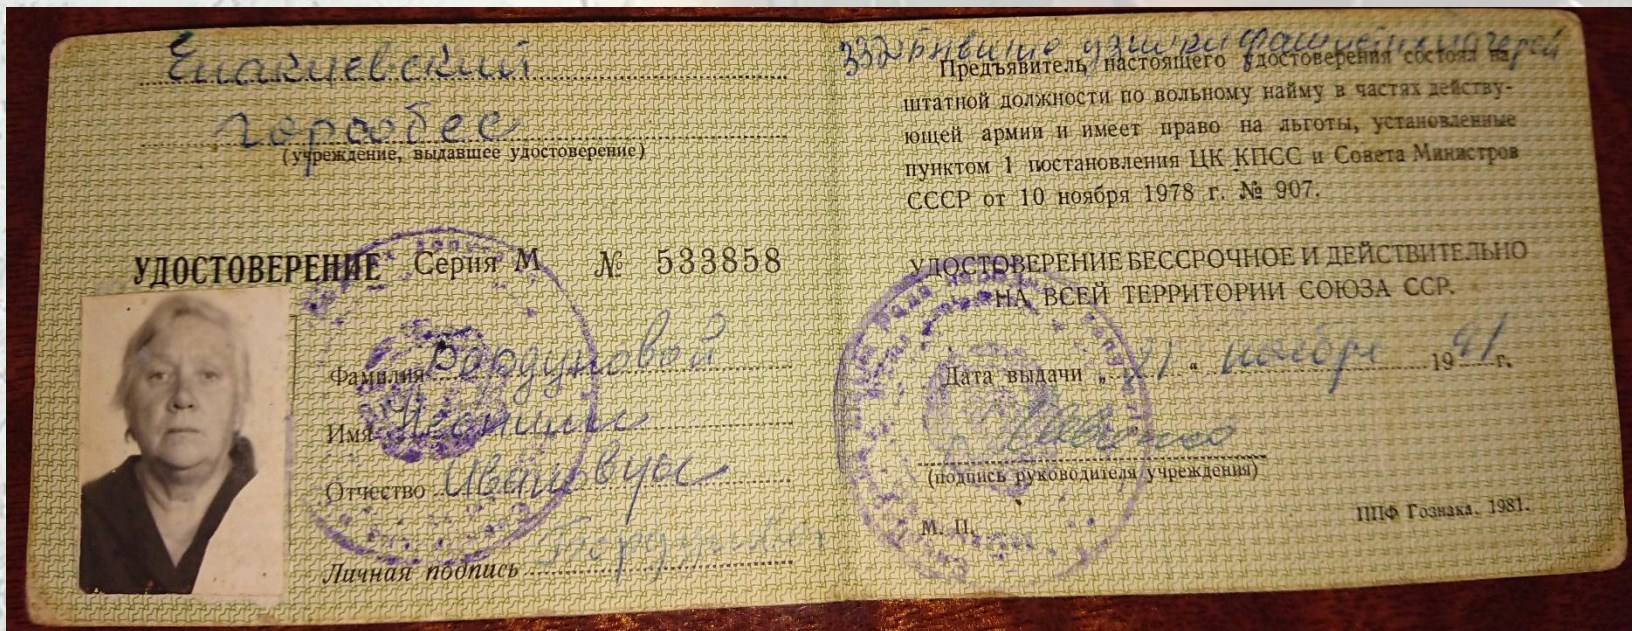 Енакиевский
горсобес
(учреждение, выдавшее удостоверение)
УДОСТОВЕРЕНИЕ Серия М № 533858
Фамилия Бордуновой
Имя Неонилы
Отчество Ивановны
Личная подпись
бывшие узники фашистских лагерей
Предъявитель настоящего удостоверения состоял на
штатной должности по вольному найму в частях действу-
ющей армии и имеет право на льготы, установленные
пунктом 1 постановления ЦК КПСС и Совета Министров
СССР от 10 ноября 1978 г. № 907.
УДОСТОВЕРЕНИЕ БЕССРОЧНОЕ И ДЕЙСТВИТЕЛЬНО
НА ВСЕЙ ТЕРРИТОРИИ СОЮЗА ССР.
Дата выдачи „21“ ноября 1991 г.
(подпись руководителя учреждения)
М. П.
ППФ Гознака. 1981.